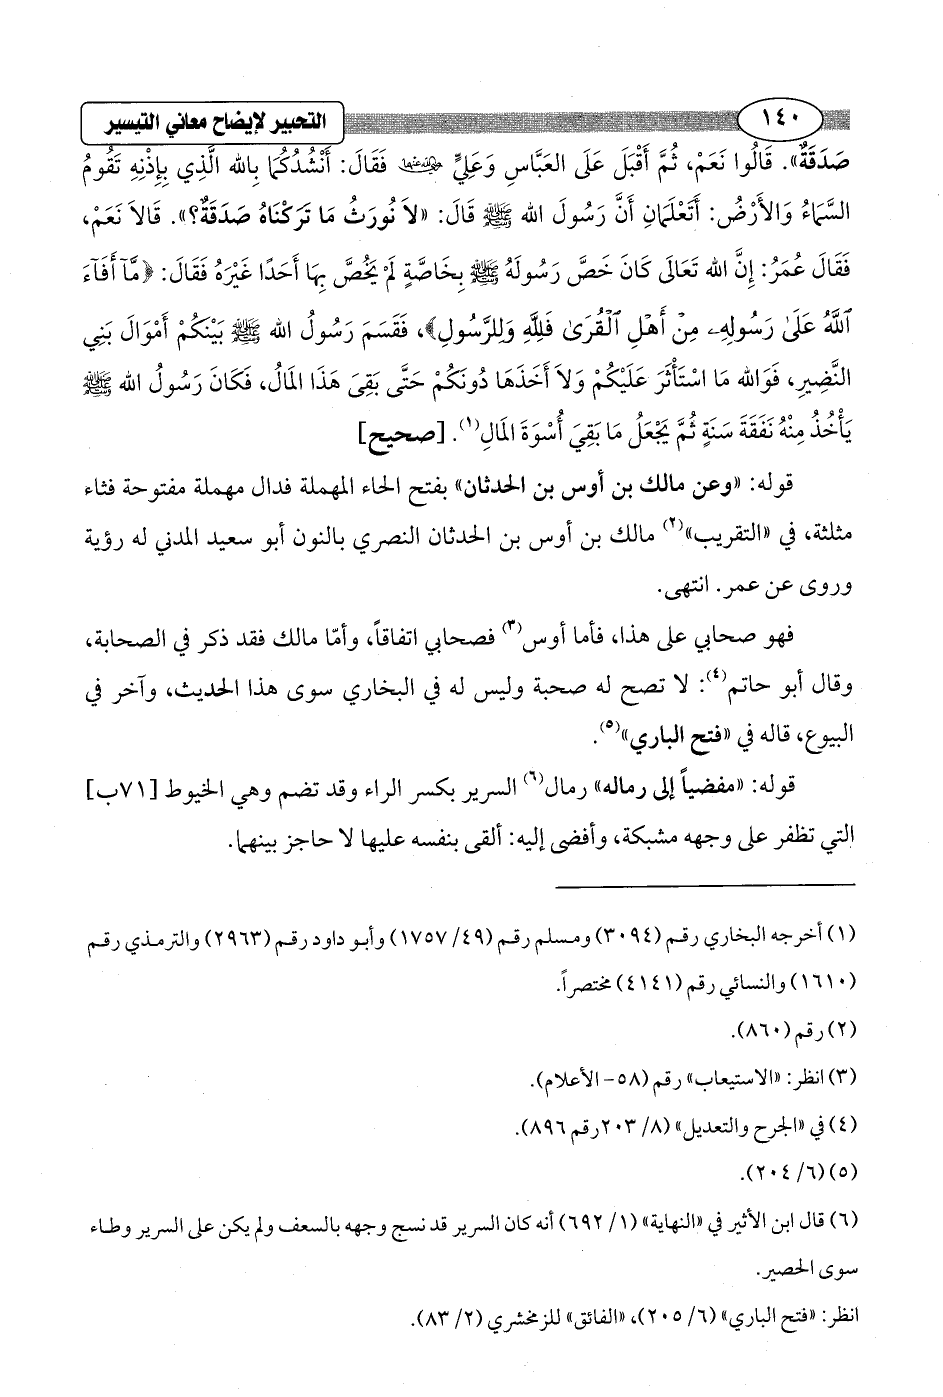 ١٤٠
التحبير لإيضاح معاني التيسير
صَدَقَةٌ». قَالُوا نَعَمْ، ثُمَّ أَقْبَلَ عَلَى العَبَّاسِ وَعَلِيٍّ رضي الله عنهما فَقَالَ: أَنْشُدُكُمَا بِالله الَّذِي بِإِذْنِهِ تَقُومُ
السَّمَاءُ وَالأَرْضُ: أَتَعْلَمَانِ أَنَّ رَسُولَ الله ﷺ قَالَ: «لاَ نُورَثُ مَا تَرَكْنَاهُ صَدَقَةٌ؟». قَالاَ نَعَمْ،
فَقَالَ عُمَرُ: إِنَّ الله تَعَالَى كَانَ خَصَّ رَسُولَهُ ﷺ بِخَاصَّةٍ لَمْ يَخُصَّ بِهَا أَحَدًا غَيْرَهُ فَقَالَ: ﴿مَّآ أَفَآءَ
ٱللَّهُ عَلَىٰ رَسُولِهِۦ مِنۡ أَهۡلِ ٱلۡقُرَىٰ فَلِلَّهِ وَلِلرَّسُولِ﴾، فَقَسَمَ رَسُولُ الله ﷺ بَيْنَكُمْ أَمْوَالَ بَنِي
النَّضِيرِ، فَوَالله مَا اسْتَأْثَرَ عَلَيْكُمْ وَلاَ أَخَذَهَا دُونَكُمْ حَتَّى بَقِىَ هَذَا المَالُ، فَكَانَ رَسُولُ الله ﷺ
يَأْخُذُ مِنْهُ نَفَقَةَ سَنَةٍ ثُمَّ يَجْعَلُ مَا بَقِيَ أُسْوَةَ المَالِ(١). [صحيح]
قوله: «وعن مالك بن أوس بن الحدثان» بفتح الحاء المهملة فدال مهملة مفتوحة فثاء
مثلثة، في «التقريب»(٢) مالك بن أوس بن الحدثان النصري بالنون أبو سعيد المدني له رؤية
وروى عن عمر. انتهى.
فهو صحابي على هذا، فأما أوس(٣) فصحابي اتفاقاً، وأمّا مالك فقد ذكر في الصحابة،
وقال أبو حاتم(٤): لا تصح له صحبة وليس له في البخاري سوى هذا الحديث، وآخر في
البيوع، قاله في «فتح الباري»(٥).
قوله: «مفضياً إلى رماله» رمال(٦) السرير بكسر الراء وقد تضم وهي الخيوط [٧١ب]
التي تظفر على وجهه مشبكة، وأفضى إليه: ألقى بنفسه عليها لا حاجز بينهما.
(١) أخرجه البخاري رقم (٣٠٩٤) ومسلم رقم (٤٩/ ١٧٥٧) وأبو داود رقم (٢٩٦٣) والترمذي رقم
(١٦١٠) والنسائي رقم (٤١٤١) مختصراً.
(٢) رقم (٨٦٠).
(٣) انظر: «الاستيعاب» رقم (٥٨- الأعلام).
(٤) في «الجرح والتعديل» (٨/ ٢٠٣رقم ٨٩٦).
(٥) (٦/ ٢٠٤).
(٦) قال ابن الأثير في «النهاية» (١/ ٦٩٢) أنه كان السرير قد نسج وجهه بالسعف ولم يكن على السرير وطاء
سوى الحصير.
انظر: «فتح الباري» (٦/ ٢٠٥)، «الفائق» للزمخشري (٢/ ٨٣).